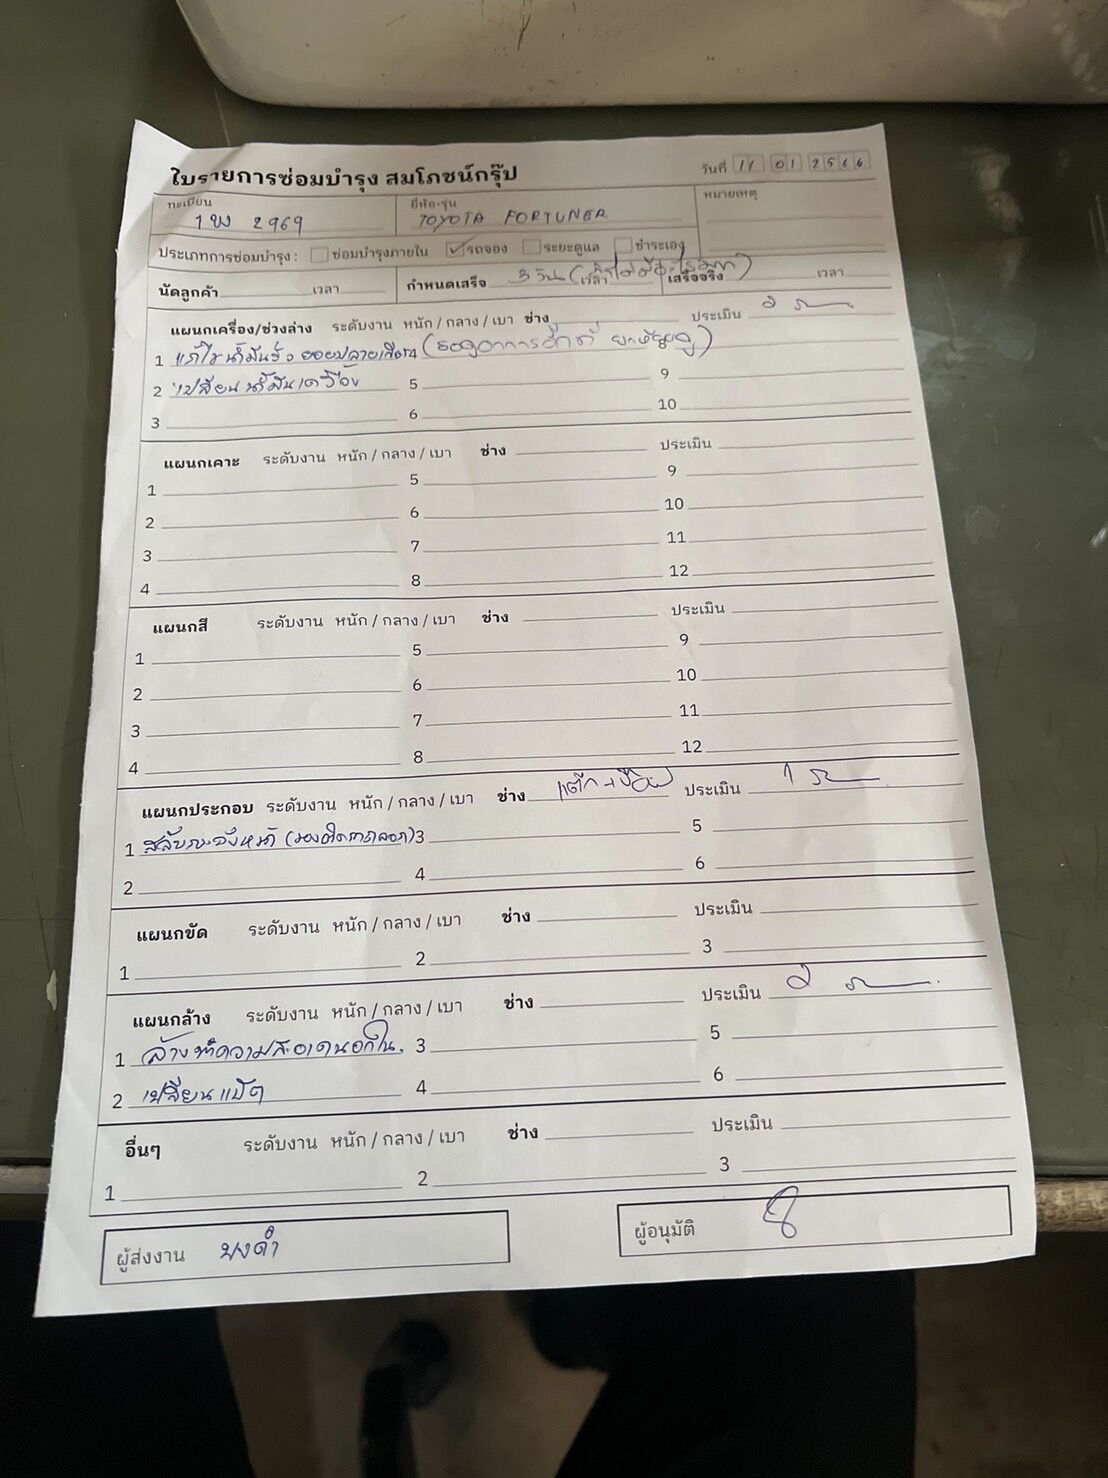 ใบรายการซ่อมบำรุง สมโภชน์กรุ๊ป
วันที่ 11 01 2566
ทะเบียน 2969
ยี่ห้อ-รุ่น TOYOTA FORTUNER
หมายเหตุ
ประเภทการซ่อมบำรุง : ซ่อมบำรุงภายใน รถจอง ระยะดูแล ชำระเอง
นัดลูกค้า เวลา กำหนดเสร็จ 3 วัน เวลา เสร็จจริง เวลา
แผนกเครื่อง/ช่วงล่าง ระดับงาน หนัก / กลาง / เบา ช่าง ประเมิน
1 แก้ไขน้ำมันรั่ว
2 เปลี่ยนน้ำมันเครื่อง 5 9
3 6 10
แผนกเคาะ ระดับงาน หนัก / กลาง / เบา ช่าง ประเมิน
1 5 9
2 6 10
3 7 11
4 8 12
แผนกสี ระดับงาน หนัก / กลาง / เบา ช่าง ประเมิน
1 5 9
2 6 10
3 7 11
4 8 12
แผนกประกอบ ระดับงาน หนัก / กลาง / เบา ช่าง ประเมิน 1
1 3 5
2 4 6
แผนกขัด ระดับงาน หนัก / กลาง / เบา ช่าง ประเมิน
1 2 3
แผนกล้าง ระดับงาน หนัก / กลาง / เบา ช่าง ประเมิน
1 ล้างทำความสะอาดนอกใน 3 5
2 เปลี่ยนแบต 4 6
อื่นๆ ระดับงาน หนัก / กลาง / เบา ช่าง ประเมิน
1 2 3
ผู้ส่งงาน
ผู้อนุมัติ